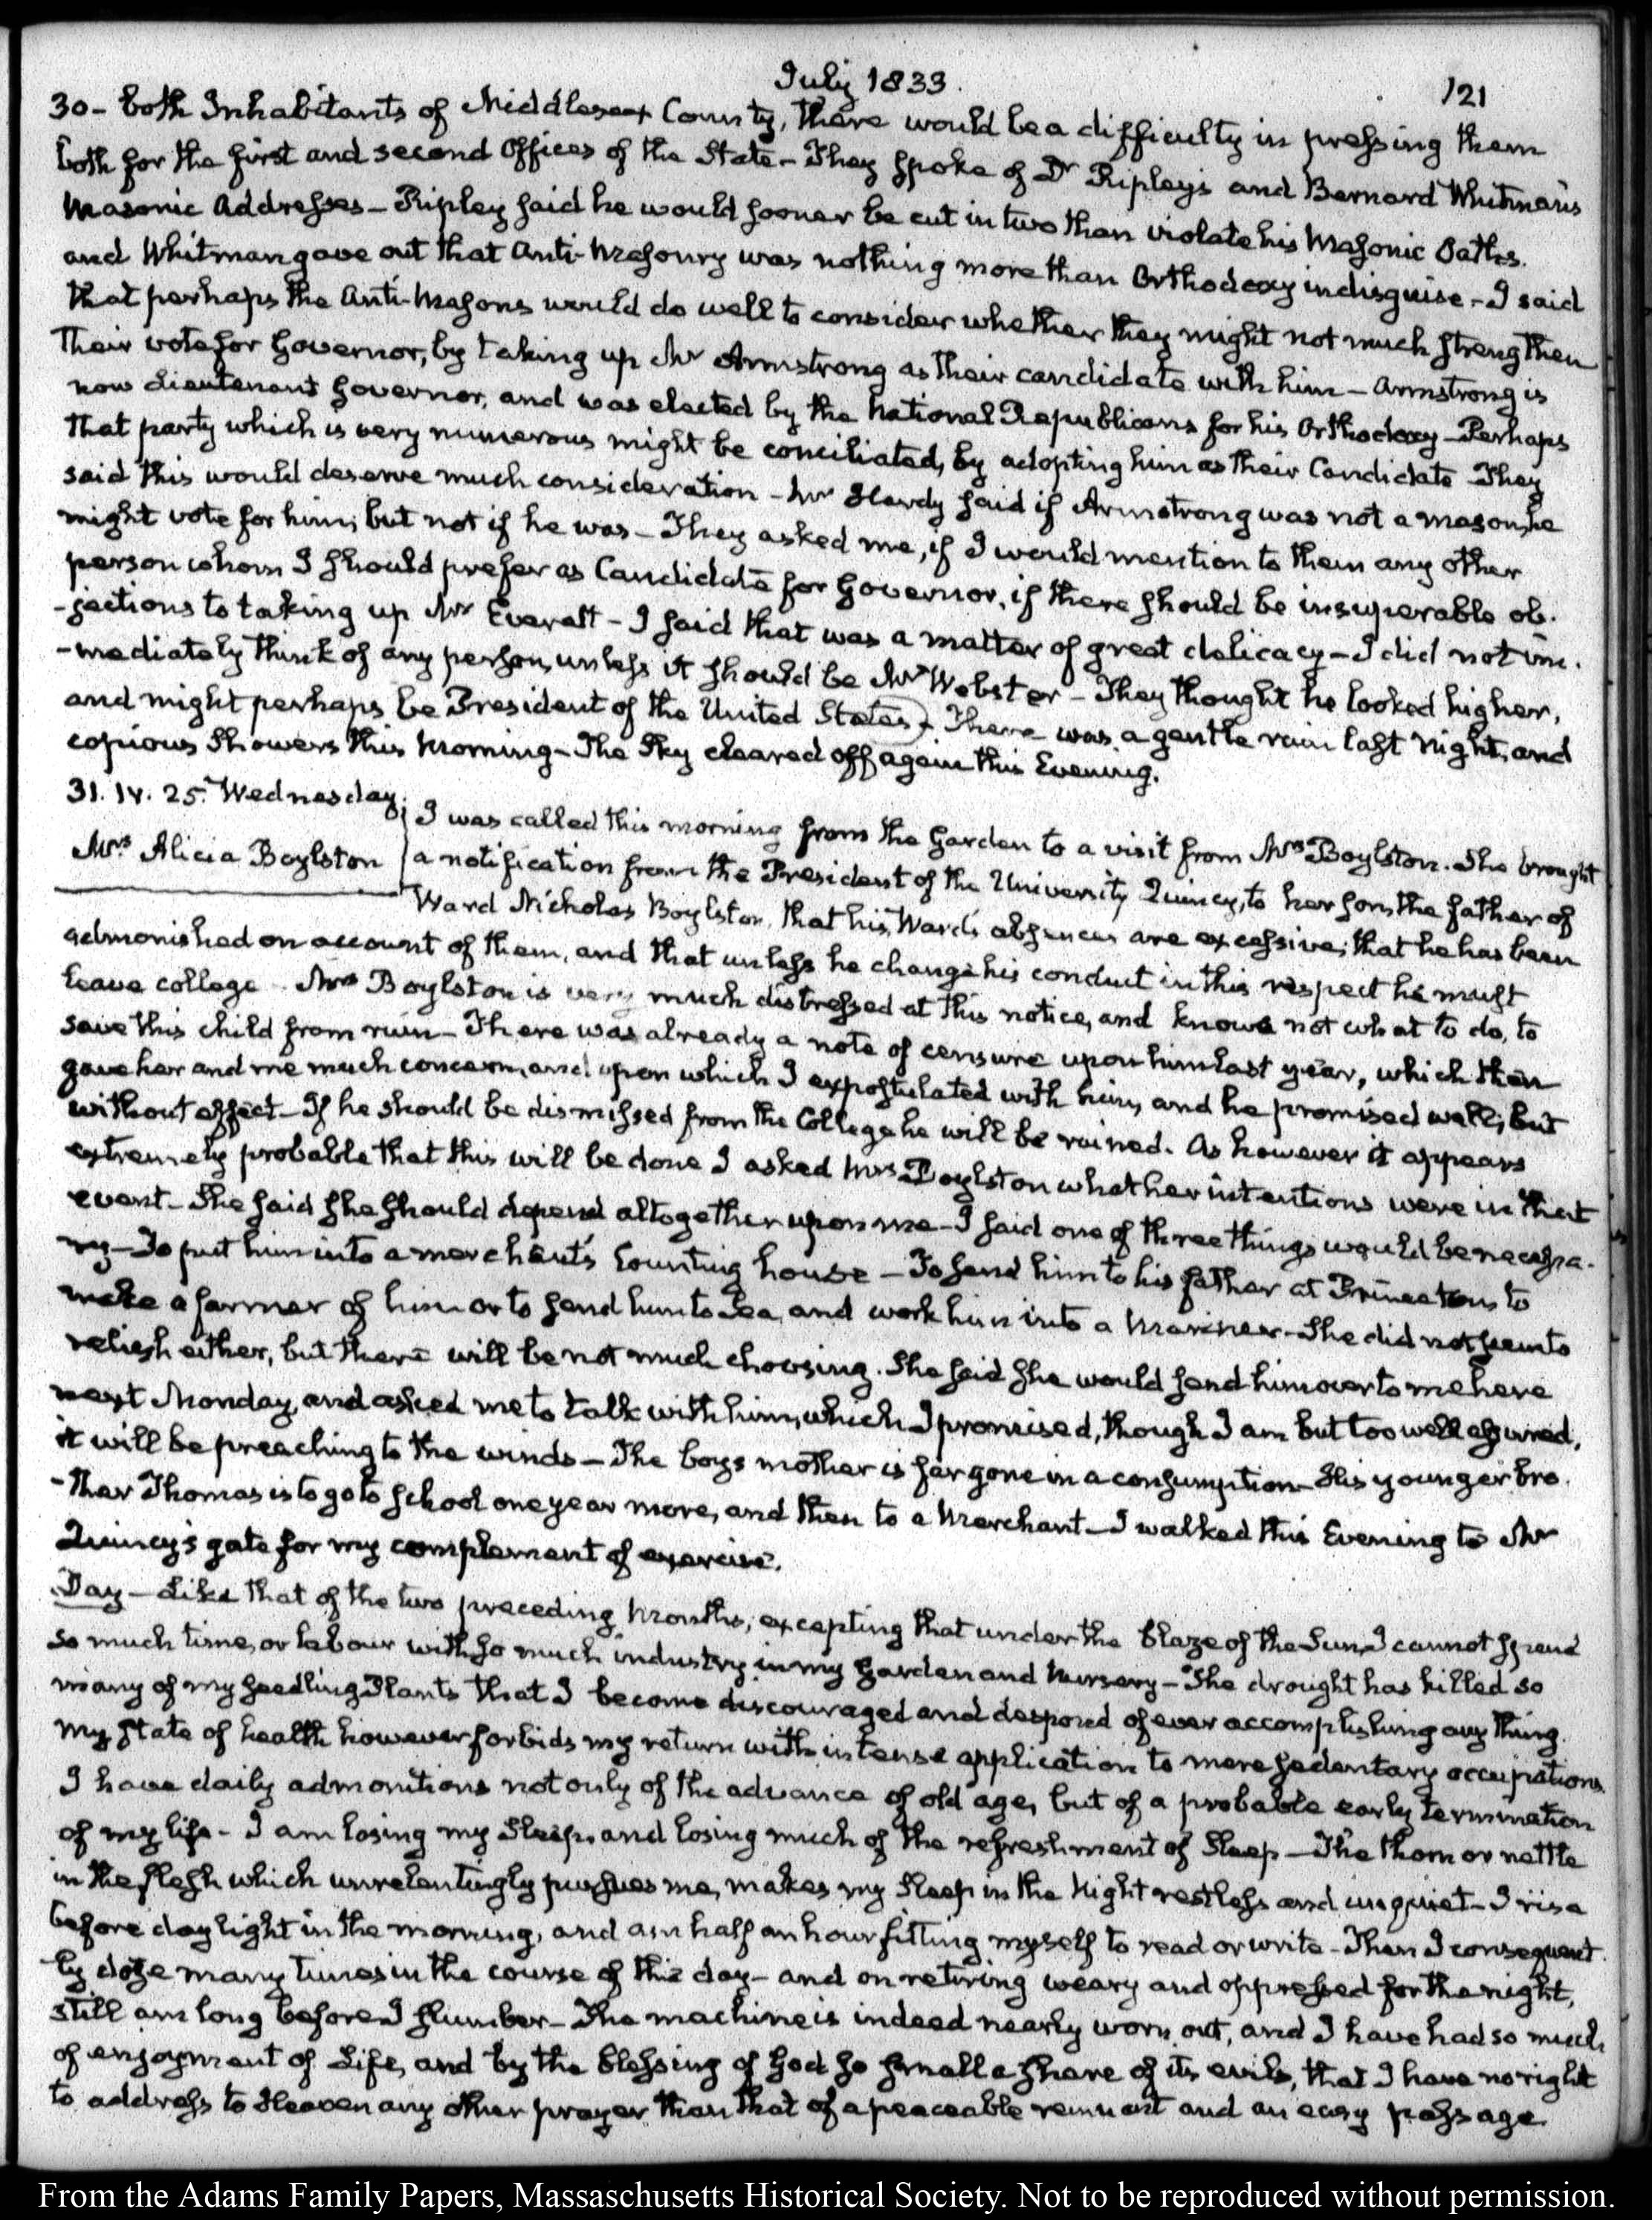 July 1833.
121
30 - both Inhabitants of Middlesex County, there would be a difficulty in pressing them
both for the first and second Offices of the State - They spoke of Dr Ripley's and Bernard Whitman's
Masonic Addresses - Ripley said he would sooner be cut in two than violate his Masonic Oaths.
and Whitman gave out that Anti-Masonry was nothing more than Orthodoxy in disguise - I said
that perhaps the Anti-Masons would do well to consider whether they might not much strengthen
their vote for Governor, by taking up Mr Armstrong as their candidate with him - Armstrong is
now Lieutenant Governor, and was elected by the National Republicans for his Orthodoxy - Perhaps
that party which is very numerous might be conciliated, by adopting him as their Candidate - They
said this would deserve much consideration - Mr Hardy said if Armstrong was not a mason, he
might vote for him; but not if he was - They asked me, if I would mention to them any other
person whom I should prefer as Candidate for Governor, if there should be insuperable ob-
-jections to taking up Mr Everett - I said that was a matter of great delicacy - I did not im-
-mediately think of any person, unless it should be Mr Webster - They thought he looked higher,
and might perhaps be President of the United States - There was a gentle rain last Night, and
copious Showers this Morning - The Sky cleared off again this Evening.
31. IV. 25. Wednesday.
Mrs Alicia Boylston
I was called this morning from the Garden to a visit from Mrs Boylston. She brought
a notification from the President of the University Quincy, to her son, the father of
Ward Nicholas Boylston, that his Ward's absences are excessive; that he has been
admonished on account of them, and that unless he change his conduct in this respect he must
leave college. Mrs Boylston is very much distressed at this notice, and knows not what to do, to
save this child from ruin - There was already a note of censure upon him last year, which then
gave her and me much concern, and upon which I expostulated with him, and he promised well; but
without effect - If he should be dismissed from the College he will be ruined. As however it appears
extremely probable that this will be done I asked Mrs Boylston what her intentions were in that
event - She said she should depend altogether upon me - I said one of three things would be necessa-
ry - To put him into a merchant's Counting house - To send him to his father at Princeton, to
make a farmer of him or to send him to Sea, and work him into a Mariner - She did not seem to
relish either, but there will be not much choosing. She said she would send him over to me here
next Monday, and asked me to talk with him, which I promised, though I am but too well assured,
it will be preaching to the winds - The boys mother is far gone in a consumption - His younger bro-
-ther Thomas is to go to school one year more, and then to a Merchant - I walked this Evening to Mr
Quincy's gate for my complement of exercise.
Day - Like that of the two preceding Months, excepting that under the blaze of the Sun, I cannot spend
so much time, or labour with so much industry in my Garden and Nursery - The drought has killed so
many of my seedling Plants that I become discouraged and despond of ever accomplishing any thing.
My state of health however forbids my return with intense application to mere sedentary occupations.
I have daily admonitions not only of the advance of old age, but of a probable early termination
of my life - I am losing my Sleep, and losing much of the refreshment of Sleep - The thorn or nettle
in the flesh which unrelentingly pursues me, makes my Sleep in the Night restless and unquiet - I rise
before daylight in the morning, and am half an hour fitting myself to read or write - Then I consequent-
ly doze many times in the course of the day - and on retiring weary and oppressed for the night,
still am long before I slumber - The machine is indeed nearly worn out, and I have had so much
of enjoyment of Life, and by the blessing of God so small a share of its evils, that I have no right
to address to Heaven any other prayer than that of a peaceable remnant and an easy passage
From the Adams Family Papers, Massaschusetts Historical Society. Not to be reproduced without permission.